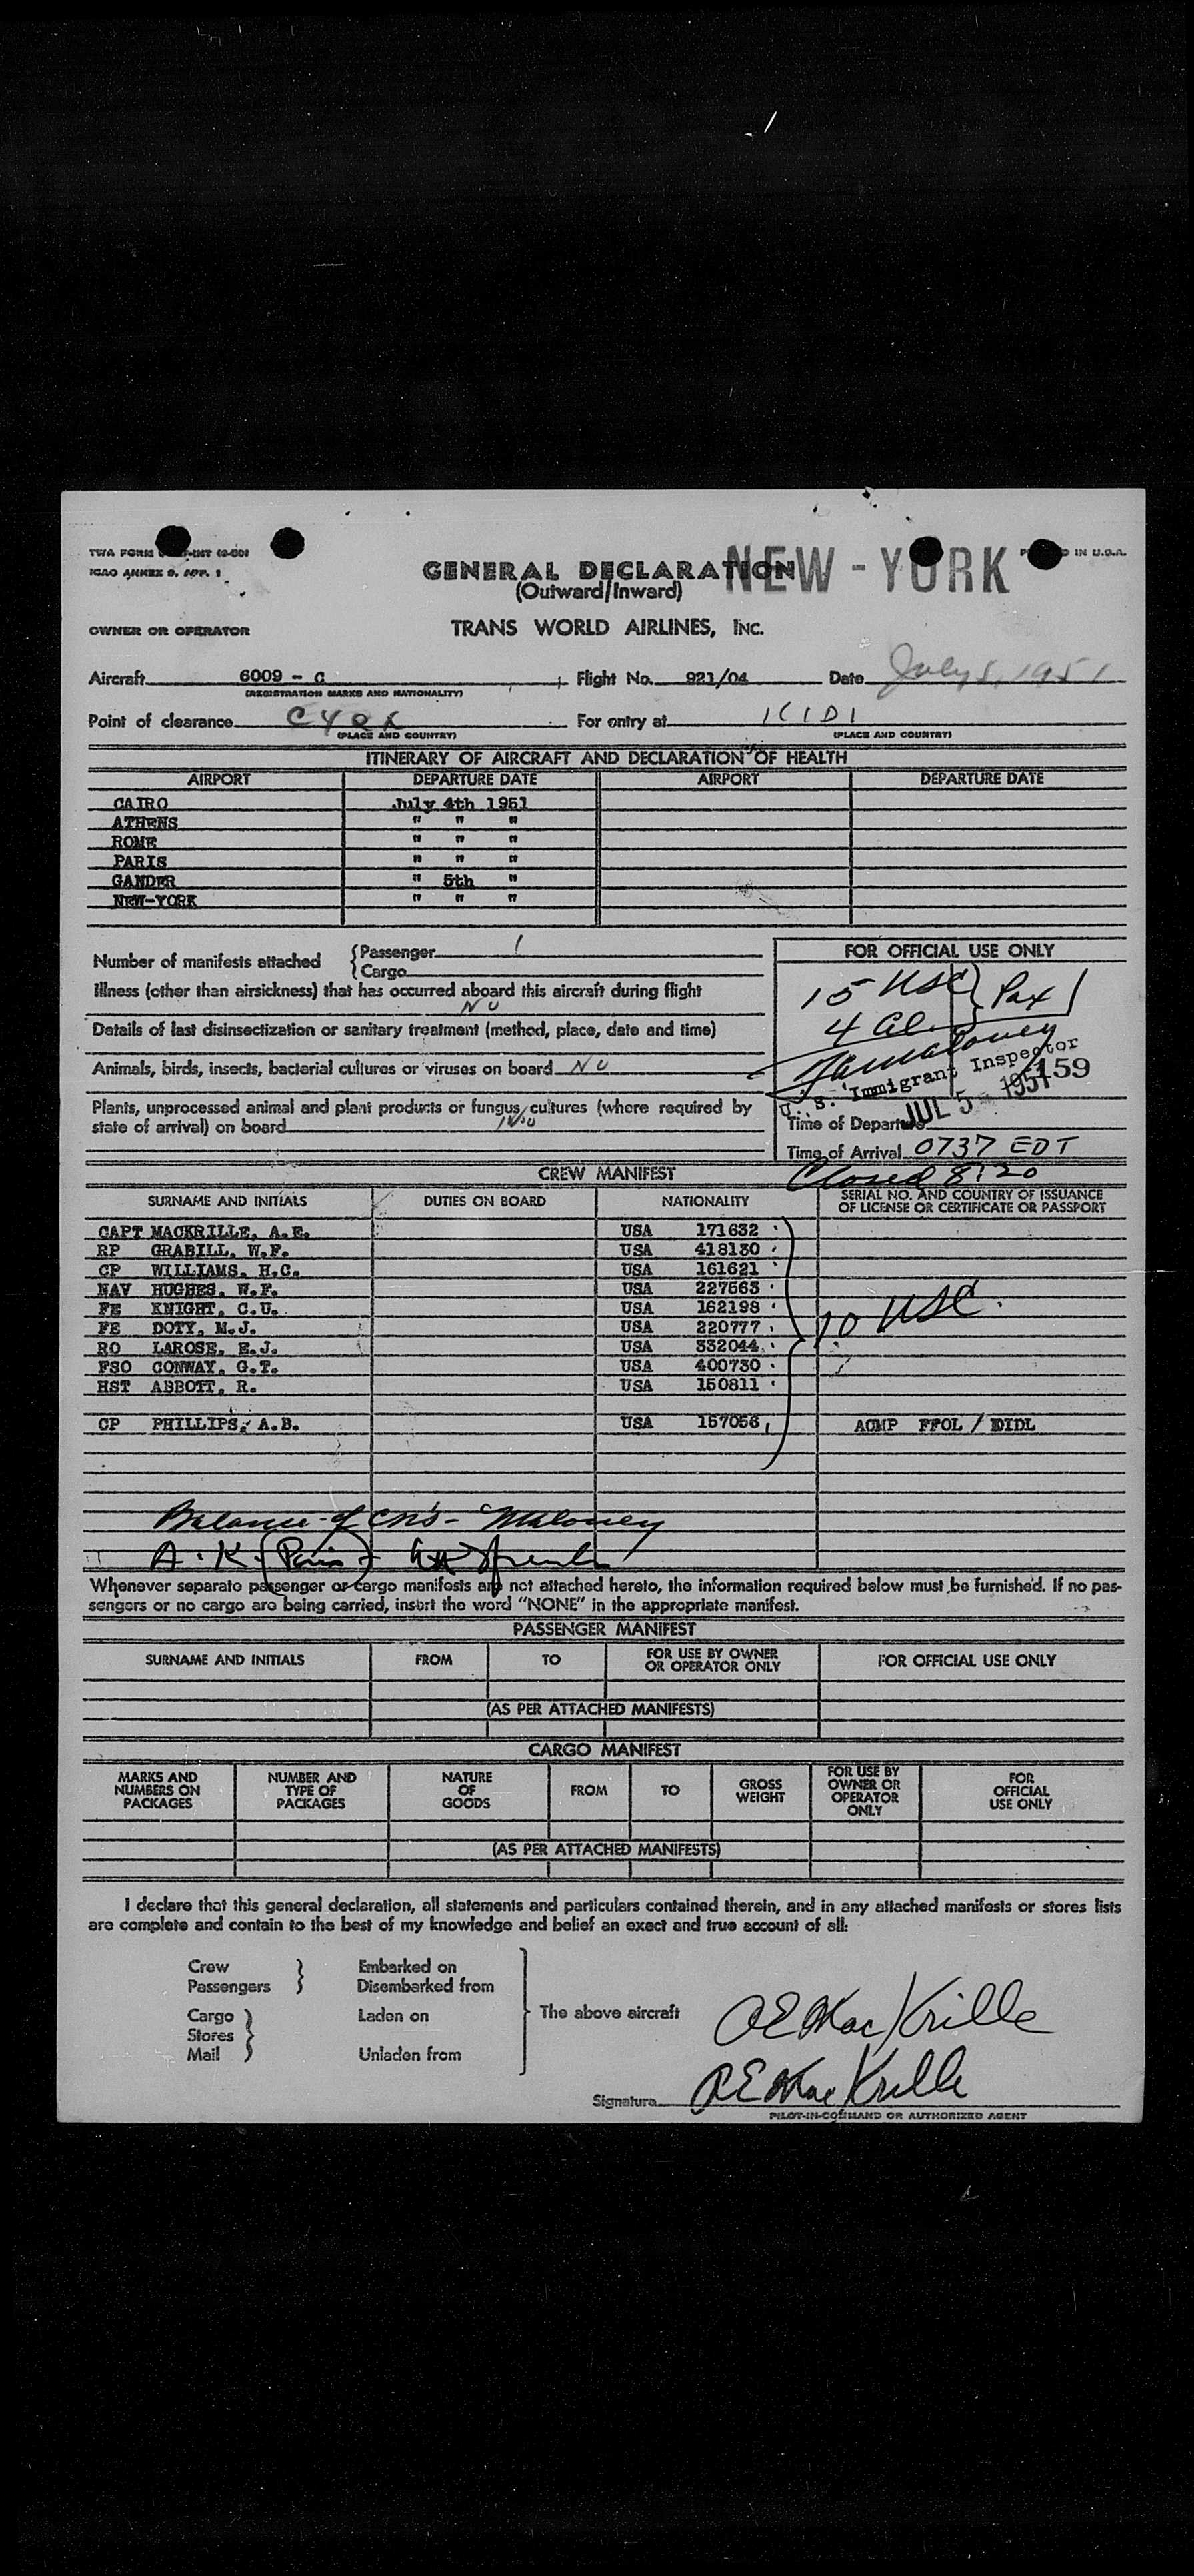 TWA FORM -INT (6-50) PRINTED IN U.S.A.
ICAO ANNEX 9, APP. 1
NEW - YORK
GENERAL DECLARATION
(Outward/Inward)
OWNER OR OPERATOR TRANS WORLD AIRLINES, INC.
Aircraft 6009 - C Flight No. 921/04 Date July 5, 1951
(REGISTRATION MARKS AND NATIONALITY)
Point of clearance CYQX For entry at KIDI
(PLACE AND COUNTRY) (PLACE AND COUNTRY)
ITINERARY OF AIRCRAFT AND DECLARATION OF HEALTH
AIRPORT DEPARTURE DATE AIRPORT DEPARTURE DATE
CAIRO July 4th 1951
ATHENS " " "
ROME " " "
PARIS " " "
GANDER " 5th "
NEW-YORK " " "
Number of manifests attached { Passenger 1
{ Cargo
Illness (other than airsickness) that has occurred aboard this aircraft during flight
NO
Details of last disinsectization or sanitary treatment (method, place, date and time)
Animals, birds, insects, bacterial cultures or viruses on board NO
Plants, unprocessed animal and plant products or fungus cultures (where required by
state of arrival) on board NO
FOR OFFICIAL USE ONLY
15 USC } Pax
4 Al.
Maloney
U. S. Immigrant Inspector
JUL 5 1951 159
Time of Departure
Time of Arrival 0737 EDT
Closed 8:20
CREW MANIFEST
SURNAME AND INITIALS DUTIES ON BOARD NATIONALITY SERIAL NO. AND COUNTRY OF ISSUANCE
OF LICENSE OR CERTIFICATE OR PASSPORT
CAPT MACKRILLE, A.E. USA 171632
RP GRABILL, W.F. USA 418130
CP WILLIAMS, H.C. USA 161621
NAV HUGHES, W.F. USA 227563
FE KNIGHT, C.U. USA 162198
FE DOTY, M.J. USA 220777
RO LAROSE, E.J. USA 332044
FSO CONWAY, G.T. USA 400730
HST ABBOTT, R. USA 150811
10 USC.
CP PHILLIPS, A.B. USA 157056 ACMP FFOL / DIDL
Balance of cns - Maloney
A.K. (Paris) -
Whenever separate passenger or cargo manifests are not attached hereto, the information required below must be furnished. If no pas-
sengers or no cargo are being carried, insert the word "NONE" in the appropriate manifest.
PASSENGER MANIFEST
SURNAME AND INITIALS FROM TO FOR USE BY OWNER
OR OPERATOR ONLY FOR OFFICIAL USE ONLY
(AS PER ATTACHED MANIFESTS)
CARGO MANIFEST
MARKS AND
NUMBERS ON
PACKAGES
NUMBER AND
TYPE OF
PACKAGES
NATURE
OF
GOODS
FROM
TO
GROSS
WEIGHT
FOR USE BY
OWNER OR
OPERATOR
ONLY
FOR
OFFICIAL
USE ONLY
(AS PER ATTACHED MANIFESTS)
I declare that this general declaration, all statements and particulars contained therein, and in any attached manifests or stores lists
are complete and contain to the best of my knowledge and belief an exact and true account of all:
Crew Embarked on
Passengers Disembarked from
Cargo Laden on The above aircraft
Stores
Mail Unladen from
A E MacKrille
Signature A E MacKrille
PILOT-IN-COMMAND OR AUTHORIZED AGENT